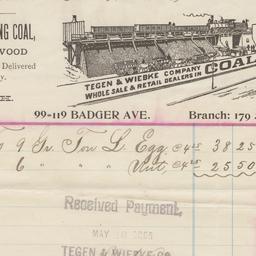 NG COAL,
WOOD
Delivered
y.
K.
TEGEN & WIEBKE COMPANY
WHOLE SALE & RETAIL DEALERS IN
COAL
99-119 BADGER AVE. Branch: 179
To 9 Gr. Ton L Egg @4 25 38 25
6 " " Nut @4 25 25 50
Received Payment,
MAY
TEGEN & WIEBKE CO